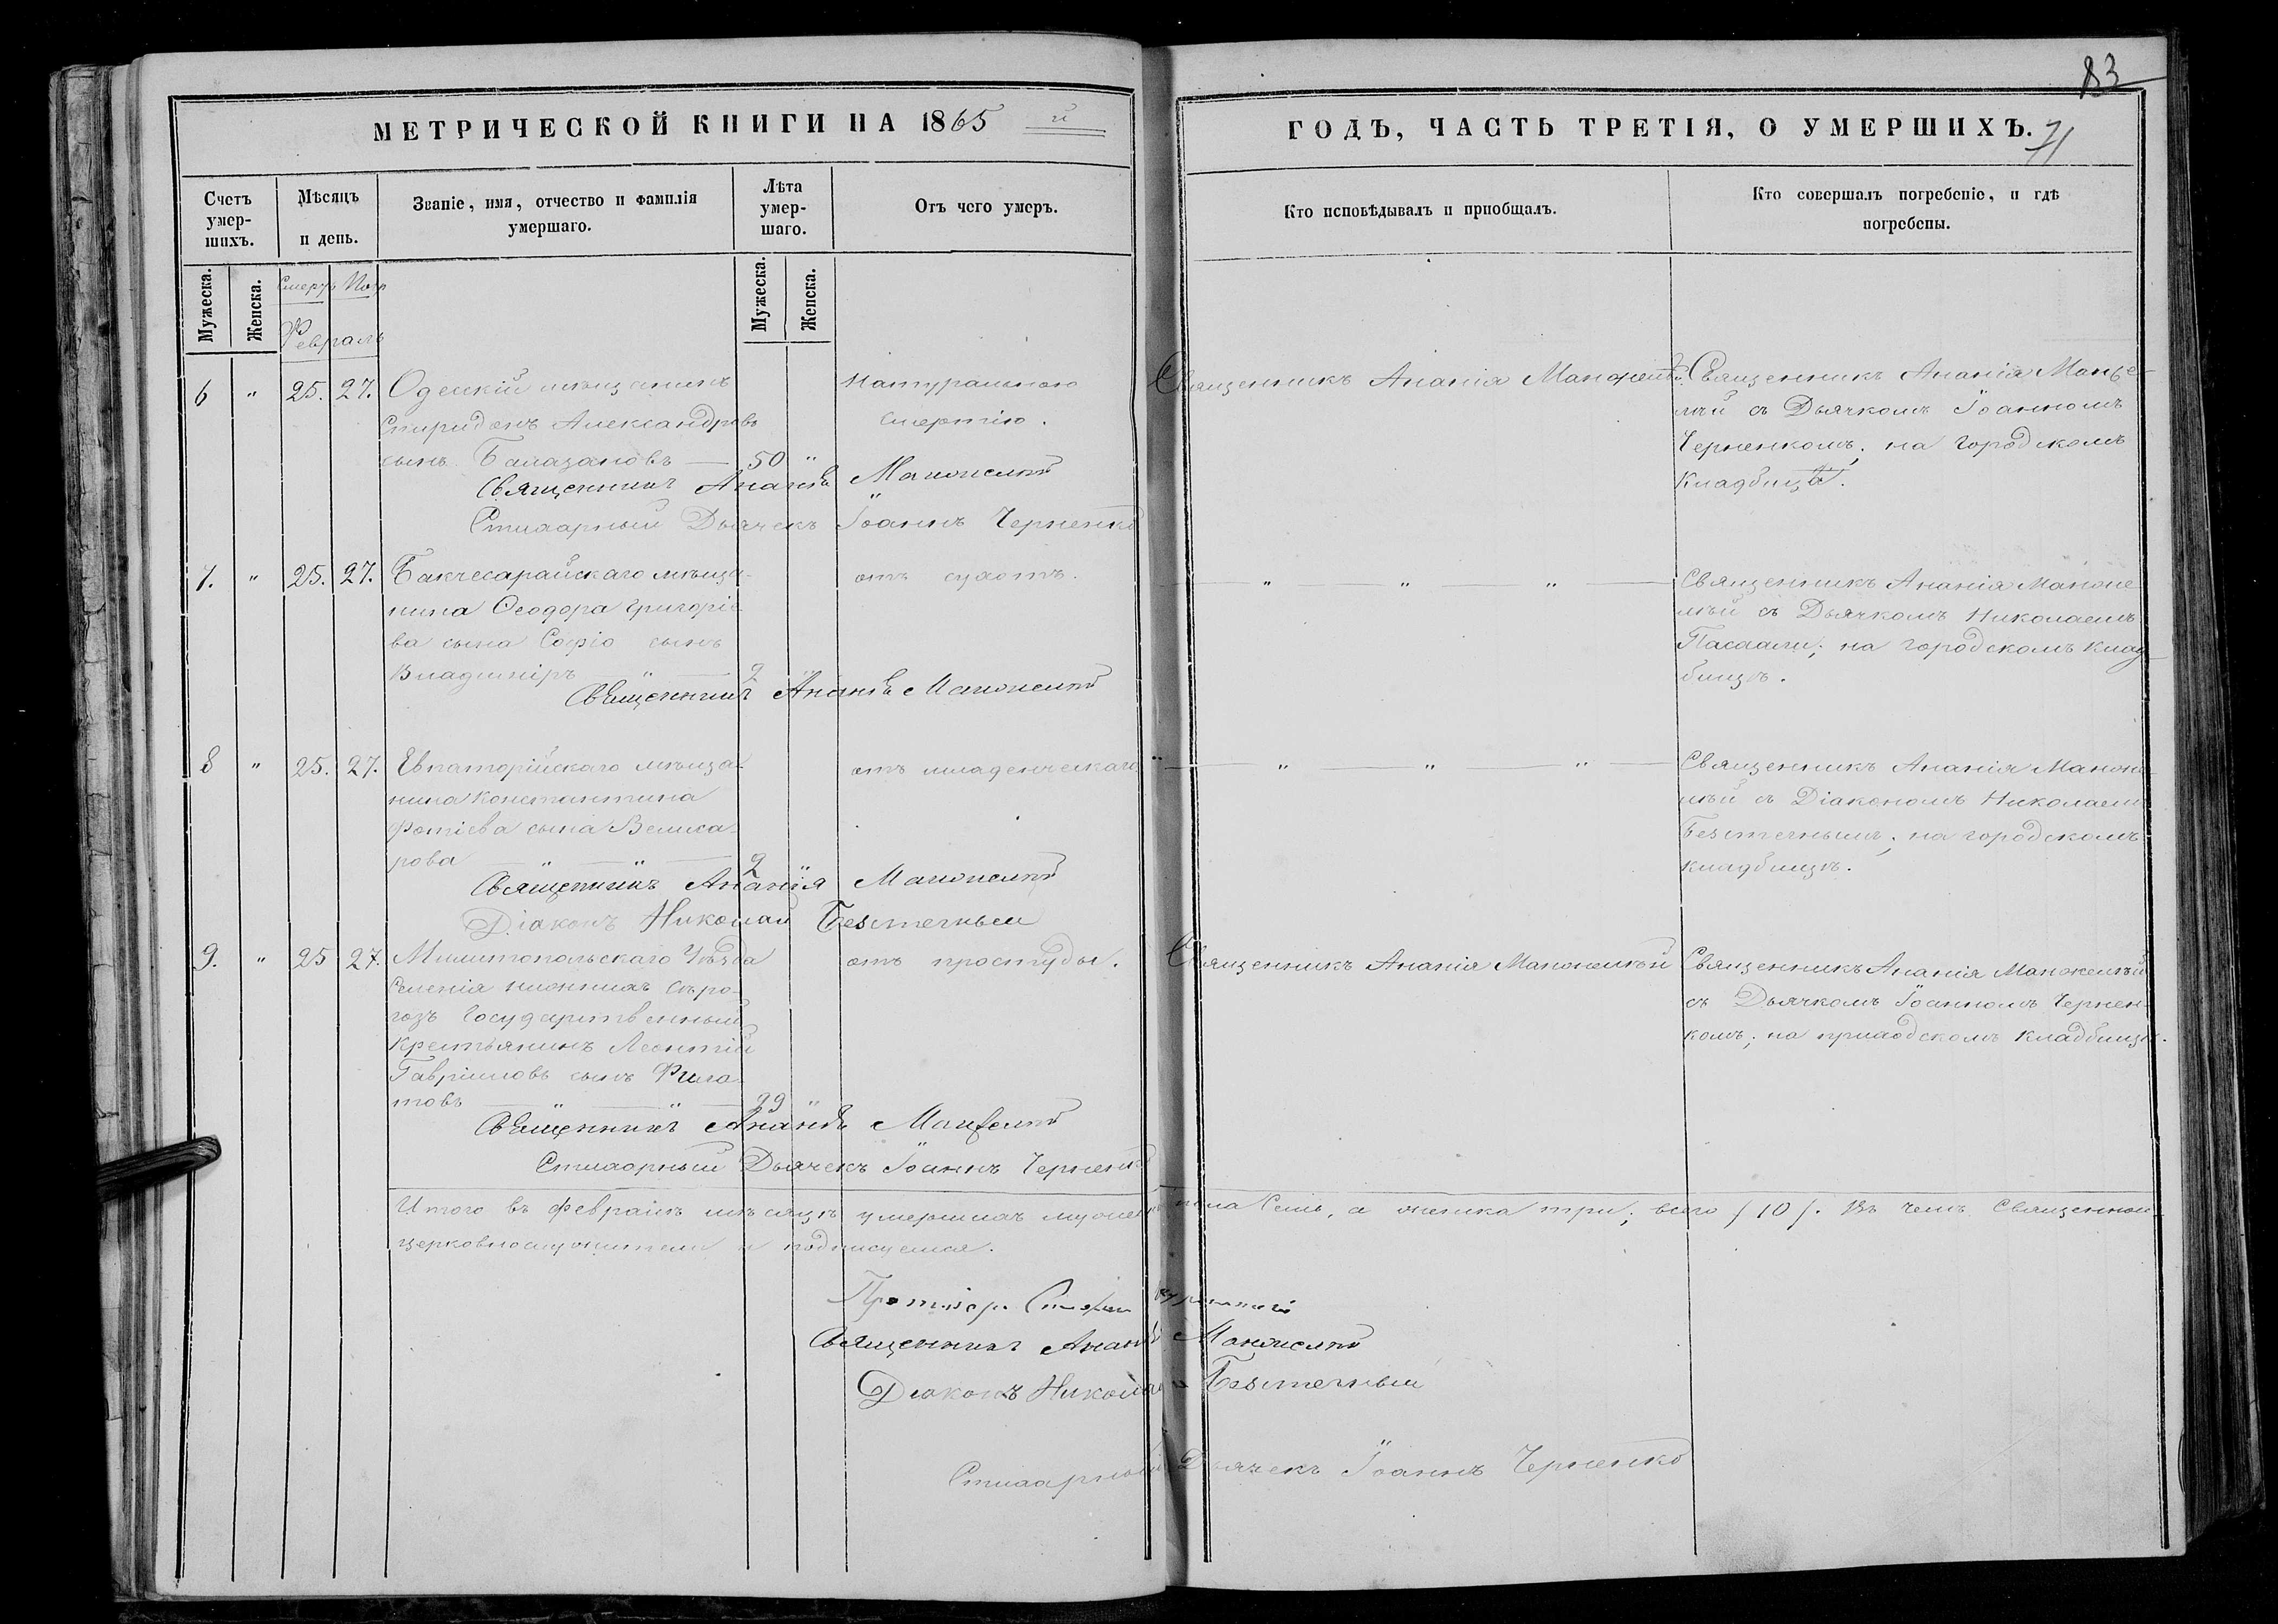 83
МЕТРИЧЕСКОЙ КНИГИ НА 1865 й
ГОДЪ, ЧАСТЬ ТРЕТІЯ, О УМЕРШИХЪ.
71
Счетъ умер-шихъ.
Мѣсяцъ и день.
Званіе, имя, отчество и фамилія умершаго.
Лѣта умер-шаго.
Отъ чего умеръ.
Кто исповѣдывалъ и пріобщалъ.
Кто совершалъ погребеніе, и гдѣ погребены.
Мужеска.
Женска.
Мужеска.
Женска.
Февраль
6 " 25. 27. Одесскій мѣщанинъ
Спиридонъ Александровъ
сынъ Балазановъ — 50 "
натуральною
смертію.
Священникъ Ананія
Священникъ Ананія
лкій съ Дьячкомъ Іоанномъ
Черненкомъ; на городскомъ
кладбищѣ.
Священникъ Ананія
Стихарный Дьячекъ Іоаннъ Черненко
7. " 25. 27. Бакчесарайскаго мѣща-
нина Ѳеодора Григоріе-
ва сына Софіо сынъ
Владиміръ " — 2 "
отъ сухотъ.
— " — " — " —
Священникъ Ананія
съ Дьячкомъ Николаемъ
на городскомъ клад-
бищѣ.
Священникъ Ананія
8 " 25. 27. Евпаторійскаго мѣща-
нина Константина
Фотіева сына Велиса-
рова — " — " — 2 "
отъ младенческаго.
" — " — " — " —
Священникъ Ананія
съ Діакономъ Николаемъ
Безтечнымъ; на городскомъ
кладбищѣ.
Священникъ Ананія
Діаконъ Николай Безтечный
9. " 25 27. Милитопольскаго Уѣзда
Селенія нижнихъ Сѣро-
гозъ Государственный
крестьянинъ Леонтій
Гавріиловъ сынъ Фила-
товъ — " — " — 29 "
отъ простуды.
Священникъ Ананія
Священникъ Ананія
съ Дьячкомъ Іоанномъ Чернен-
комъ; на приходскомъ кладбищѣ.
Священникъ Ананія
Стихарный Дьячекъ Іоаннъ Черненко
Итого въ февралѣ мѣсяцѣ умершихъ мужеска пола семь, а женска три; всего /10/. Въ чемъ Священно и
церковнослужители и подписуемся.
Священникъ Ананія
Діаконъ Николай Безтечный
Стихарный Дьячекъ Іоаннъ Черненко